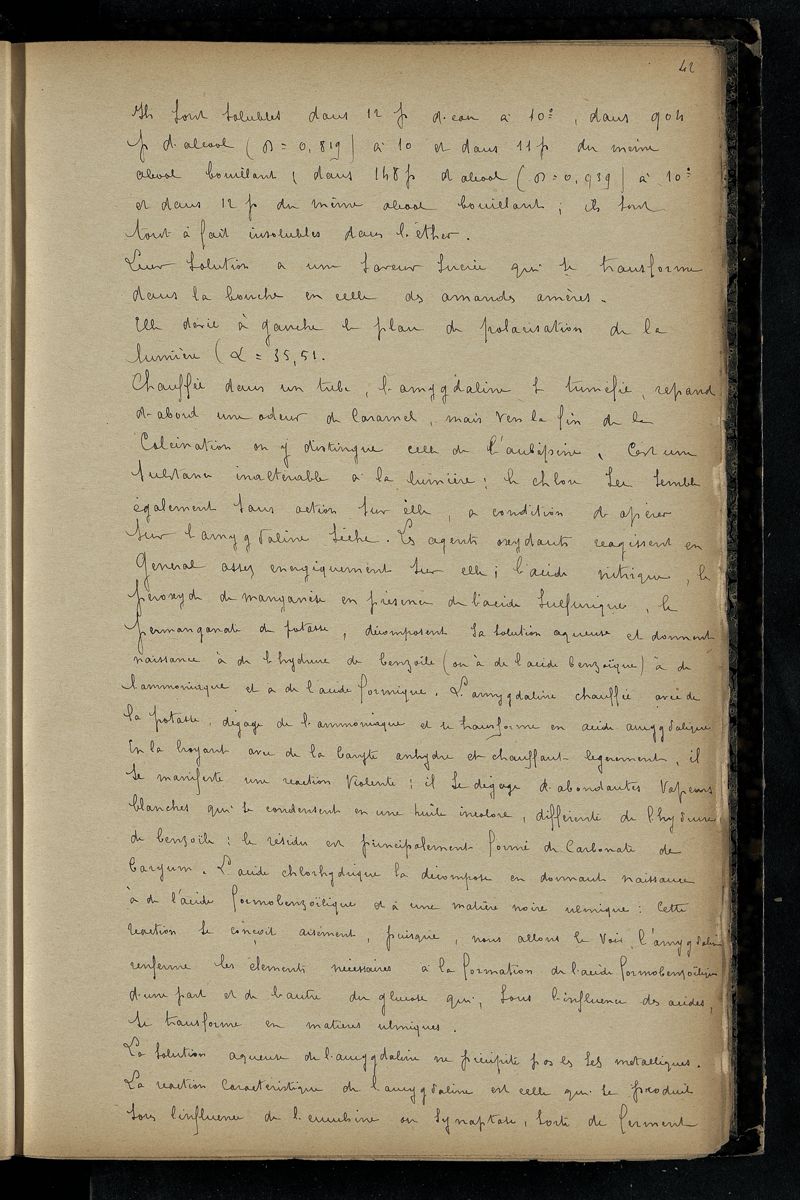 42
Ils sont solubles dans 12 p d'eau à 10°, dans 904
p d'alcool (D = 0,819) à 10 et dans 11 p du même
alcool bouillant, dans 148 p d'alcool (D = 0,939) à 10°
et dans 12 p du même alcool bouillant; ils sont
tout à fait insolubles dans l'éther.
Leur solution a une saveur sucrée qui se transforme
dans la bouche en celle des amandes amères.
Elle dévie à gauche le plan de polarisation de la
lumière (α = 35,51.
Chauffée dans un tube, l'amygdaline se tuméfie, répand
d'abord une odeur de Caramel, mais vers la fin de la
Calcination on y distingue celle de l'aubépine, C'est une
substance inaltérable à la lumière; le chlore sec semble
également sans action sur elle, à condition d'opérer
sur l'amygdaline sèche. Les agents oxydants réagissent en
Général assez énergiquement sur elle; l'acide nitrique, le
péroxyde de manganèse en présence de l'acide sulfurique, le
permanganate de potasse, décomposent sa solution aqueuse et donnent
naissance à de l'hydrure de benzoïle (ou à de l'acide benzoïque) à de
l'ammoniaque et à de l'acide formique. L'amygdaline chauffée avec de
la potasse, dégage de l'ammoniaque et se transforme en acide amygdalique
En la broyant avec de la baryte anhydre et chauffant légèrement, il
se manifeste une réaction violente; il se dégage d'abondantes vapeurs
blanches qui se condensent en une huile incolore, différente de l'hydrure
de benzoïle: le résidu est principalement formé de Carbonate de
baryum. L'acide chlorhydrique la décompose en donnant naissance
à de l'acide formobenzoïlique et à une matière noire ulmique: Cette
réaction se conçoit aisément, puisque, nous allons le voir, l'amygdaline
renferme les éléments nécessaires à la formation de l'acide formobenzoïlique
d'une part et de l'autre du glucose qui, sous l'influence des acides,
se transforme en matières ulmiques.
La solution aqueuse de l'amygdaline ne précipite pas les sels métalliques.
La réaction Caractéristique de l'amygdaline est celle qui se produit
sous l'influence de l'émulsine ou synaptase, sorte de ferment